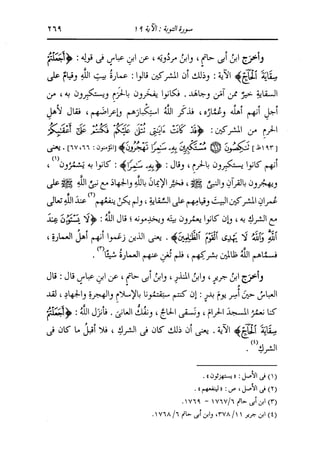 سورة التوبة : الآية ١٩ ٢٦٩
وأخرج ابنُ أبى حاتمٍ ، وابنُ مردُويَه ، عن ابنِ عباسٍ فى قولِه : ﴿ أَجَعَلْتُمْ
سِقَايَةَ الْحَاجِّ ﴾ الآية : وذلك أن المشركين قالوا : عمارةُ بيتِ اللَّهِ وقيامٌ على
السقايةِ خيرٌ ممن آمَن وجاهَد . فكانوا يفخَرون بالحَرَمِ ويستكبرون به ، من
أجلِ أنهم أهلُه وعُمَّارُه ، فذكَر اللَّهُ استكبارَهم وإعراضَهم ، فقال لأهلِ
الحرمِ من المشركين : ﴿ قَدْ كَانَتْ ءَايَٰتِى تُتْلَىٰ عَلَيْكُمْ فَكُنتُمْ عَلَىٰٓ أَعْقَٰبِكُمْ
[١٩٣ظ] تَنكِصُونَ ﴿٦٦﴾ مُسْتَكْبِرِينَ بِهِۦ سَٰمِرًا تَهْجُرُونَ ﴾ [المؤمنون : ٦٦، ٦٧] . يعنى
أنهم كانوا يستكبرون بالحرمِ ، وقال : ﴿ بِهِۦ سَٰمِرًا ﴾ : كانوا به يَسْمُرون (١) ،
ويهجُرون بالقرآنِ والنبىِّ ﷺ ، فخيَّر الإيمانَ باللَّهِ والجهادَ مع نبىِّ اللَّهِ ﷺ على
عُمرانِ المشركين البيتَ وقيامِهم على السِّقايةِ ، ولم يكنْ ينفعُهم (٢) عندَ اللَّهِ تعالى
مع الشركِ به ، وإن كانوا يعمُرون بيتَه ويخدِمونه ؛ قال اللَّهُ : ﴿ لَا يَسْتَوُۥنَ عِندَ
اللَّهِ وَاللَّهُ لَا يَهْدِى الْقَوْمَ الظَّٰلِمِينَ ﴾ . يعنى الذين زعَموا أنهم أهلُ العمارةِ ،
فسمَّاهم اللَّهُ ظالمين بشركِهم ، فلم تُغنِ عنهم العمارةُ شيئًا (٣) .
وأخرج ابنُ جريرٍ ، وابنُ المنذرِ ، وابنُ أبى حاتمٍ ، عن ابنِ عباسٍ قال : قال
العباسُ حينَ أُسِر يومَ بدرٍ : إن كنتم سبَقتُمونا بالإسلامِ والهجرةِ والجهادِ ، لقد
كنا نعمُرُ المسجدَ الحرامَ ، ونَسقى الحاجَّ ، ونفُكُّ العانىَ . فأنزَل اللَّهُ : ﴿ أَجَعَلْتُمْ
سِقَايَةَ الْحَاجِّ ﴾ الآية . يعنى أن ذلك كان فى الشركِ ، فلا أقبلُ ما كان فى
الشركِ (٤) .
(١) فى الأصل : « يستهزئون » .
(٢) فى الأصل ، ص : « لينفعهم » .
(٣) ابن أبى حاتم ٦/ ١٧٦٧ - ١٧٦٩ .
(٤) ابن جرير ١١/ ٣٧٨، وابن أبى حاتم ٦/ ١٧٦٨ .